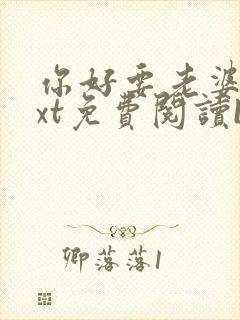 你好要老婆
xt免費閱讀
卿落落1